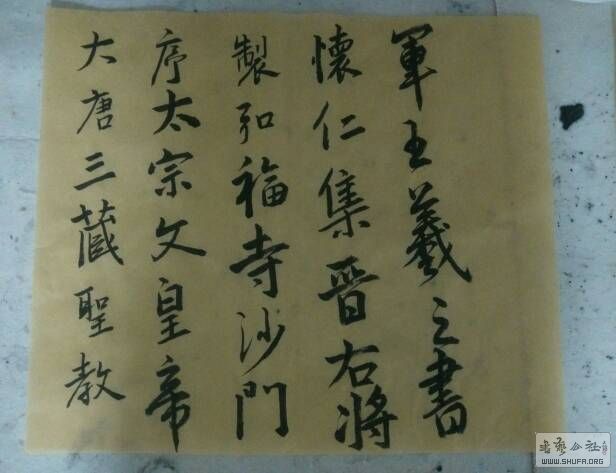 大唐三藏聖教
序太宗文皇帝
製弘福寺沙門
懷仁集晉右將
軍王羲之書
書藝公社
WWW.SHUFA.ORG